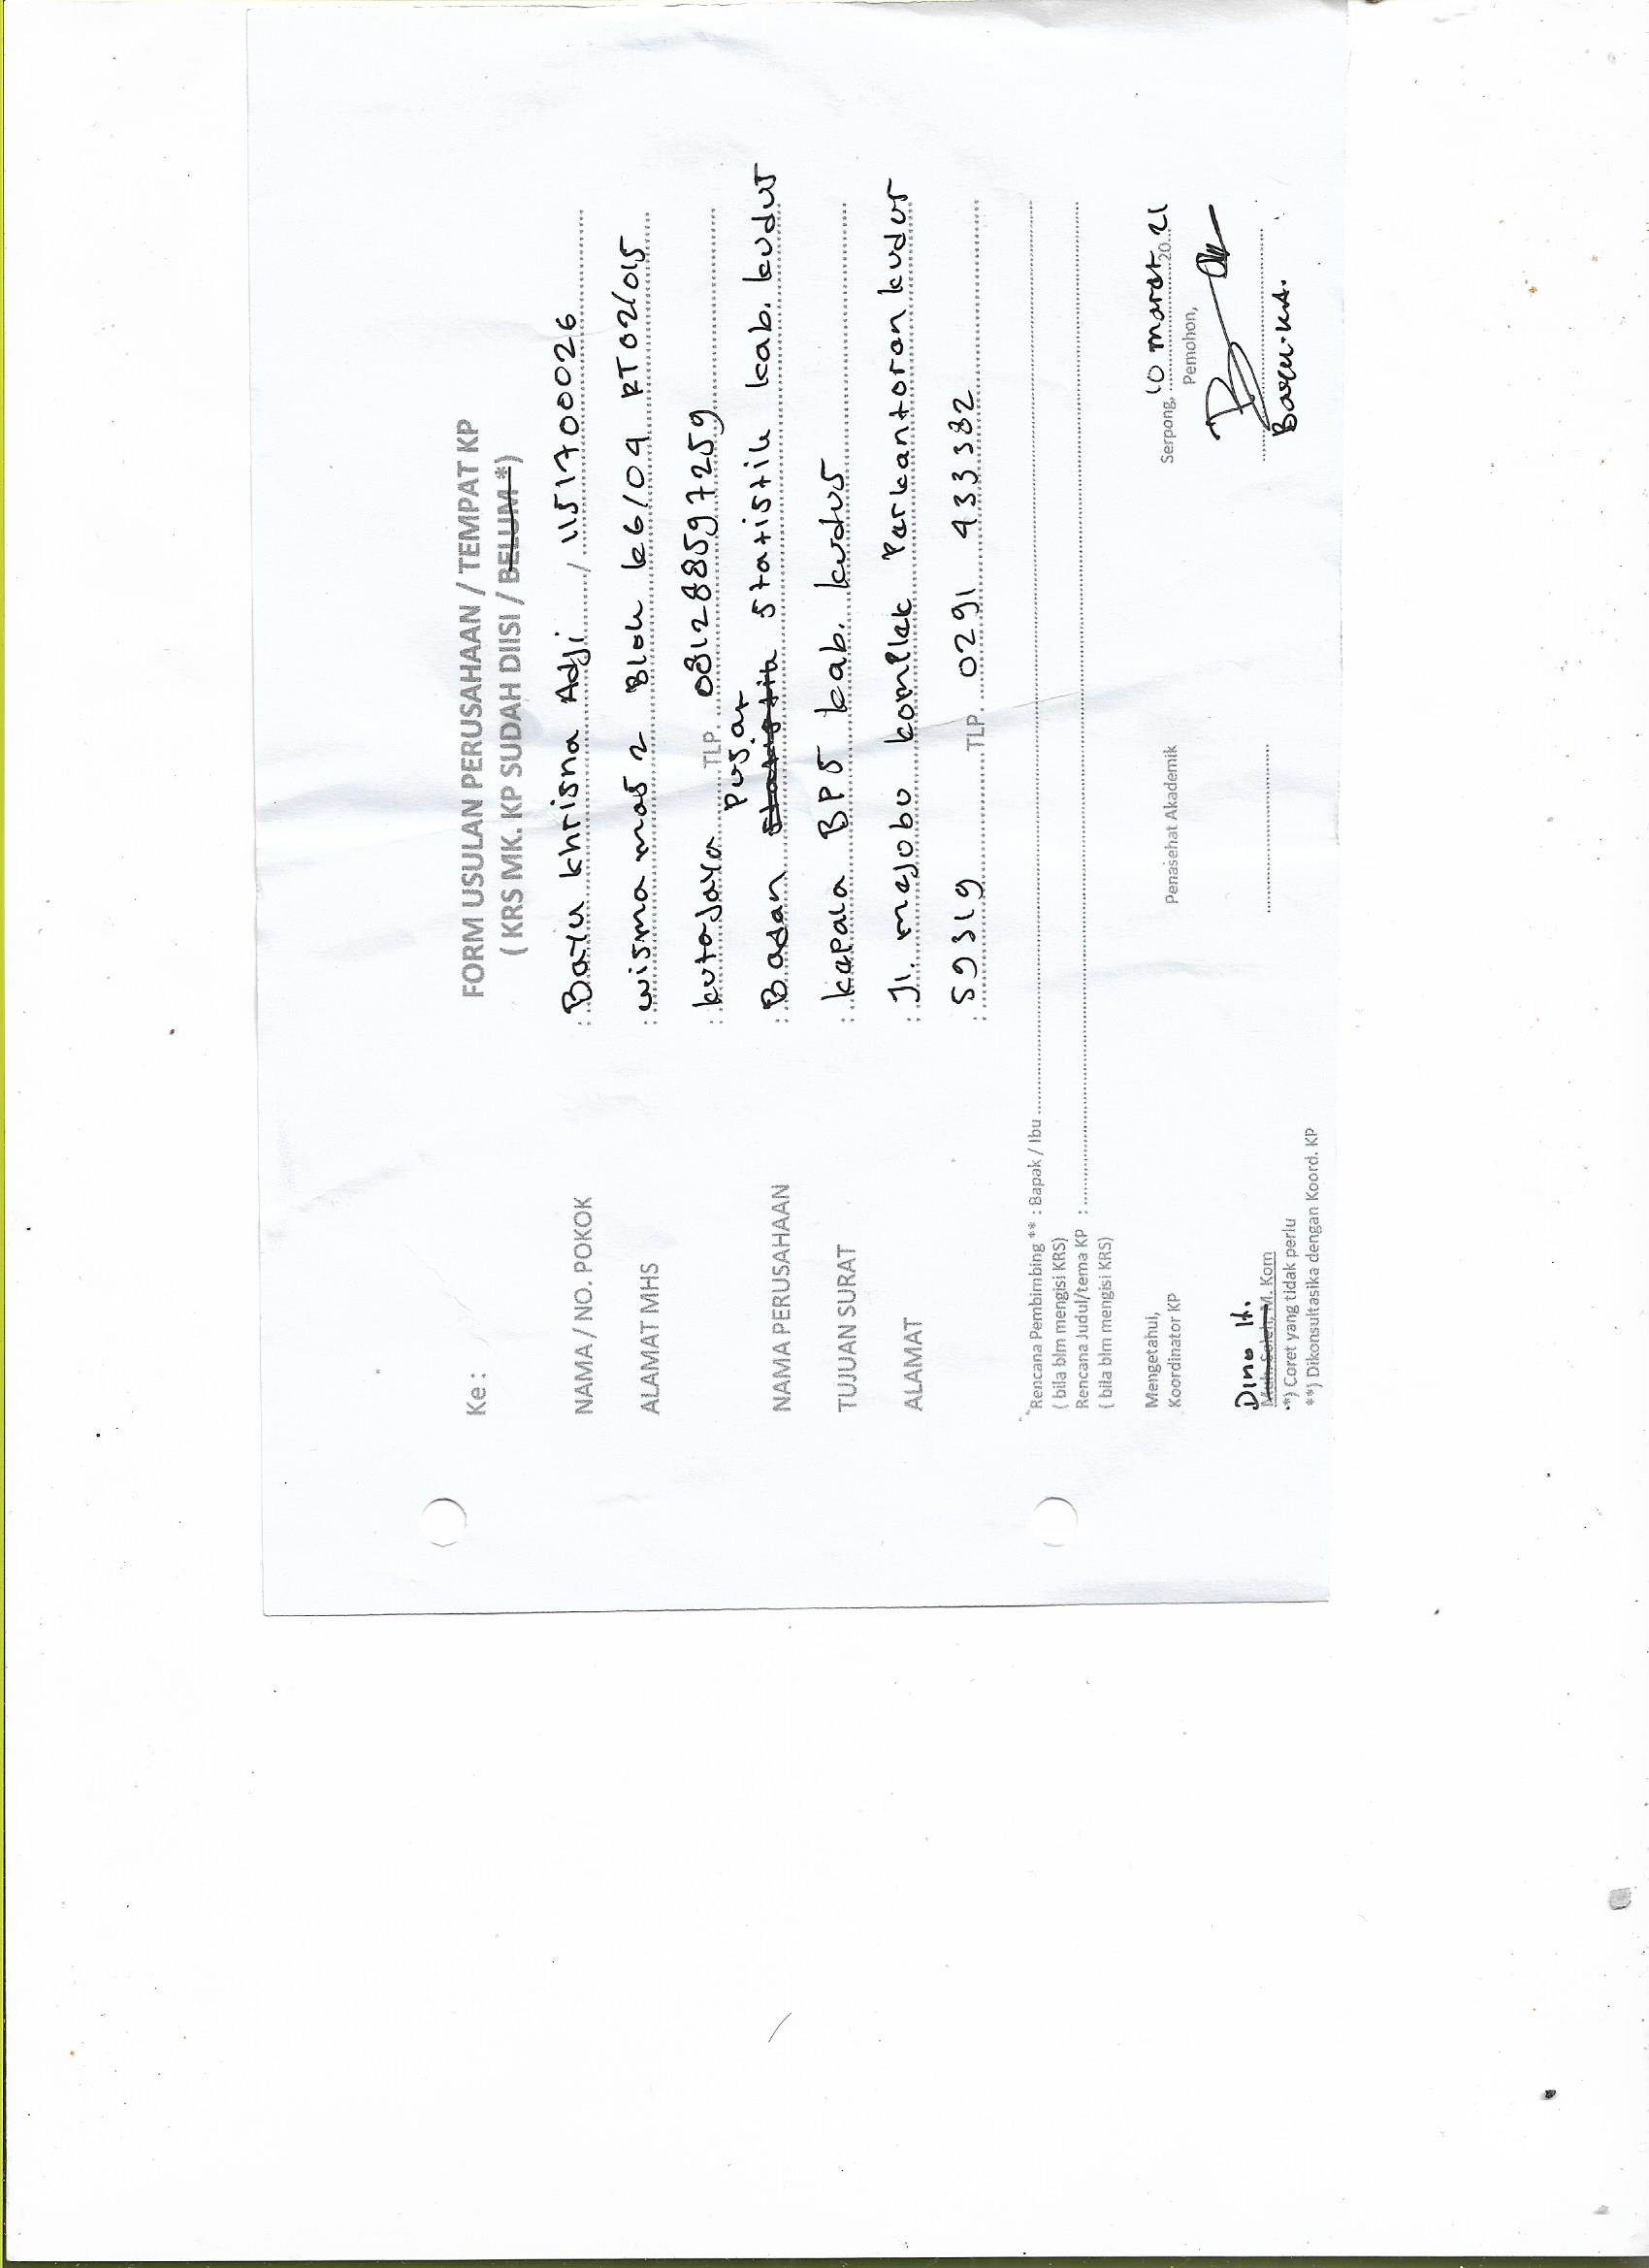 FORM USULAN PERUSAHAAN / TEMPAT KP
Ke :
( KRS MK. KP SUDAH DIISI / BELUM *)
NAMA / NO. POKOK : Bayu Khrisna Adji / 1151700026
ALAMAT MHS : wisma mas 2 Blok k6/09 RT 02/015
: kutajaya TLP. 081288597259
Pusat
NAMA PERUSAHAAN : Badan statistik statistik kab. kudus
TUJUAN SURAT : kepala BPS kab. kudus
ALAMAT : Jl. mejobo komplek Perkantoran kudus
: 59319 TLP. 0291 433382
Rencana Pembimbing ** : Bapak / Ibu
( bila blm mengisi KRS)
Rencana Judul/tema KP :
( bila blm mengisi KRS)
Mengetahui,
Serpong, 10 maret 2021
Koordinator KP Penasehat Akademik Pemohon,
Dino H.
Muh Soleh, M. Kom
Bayu.K.A.
*) Coret yang tidak perlu
**) Dikonsultasika dengan Koord. KP